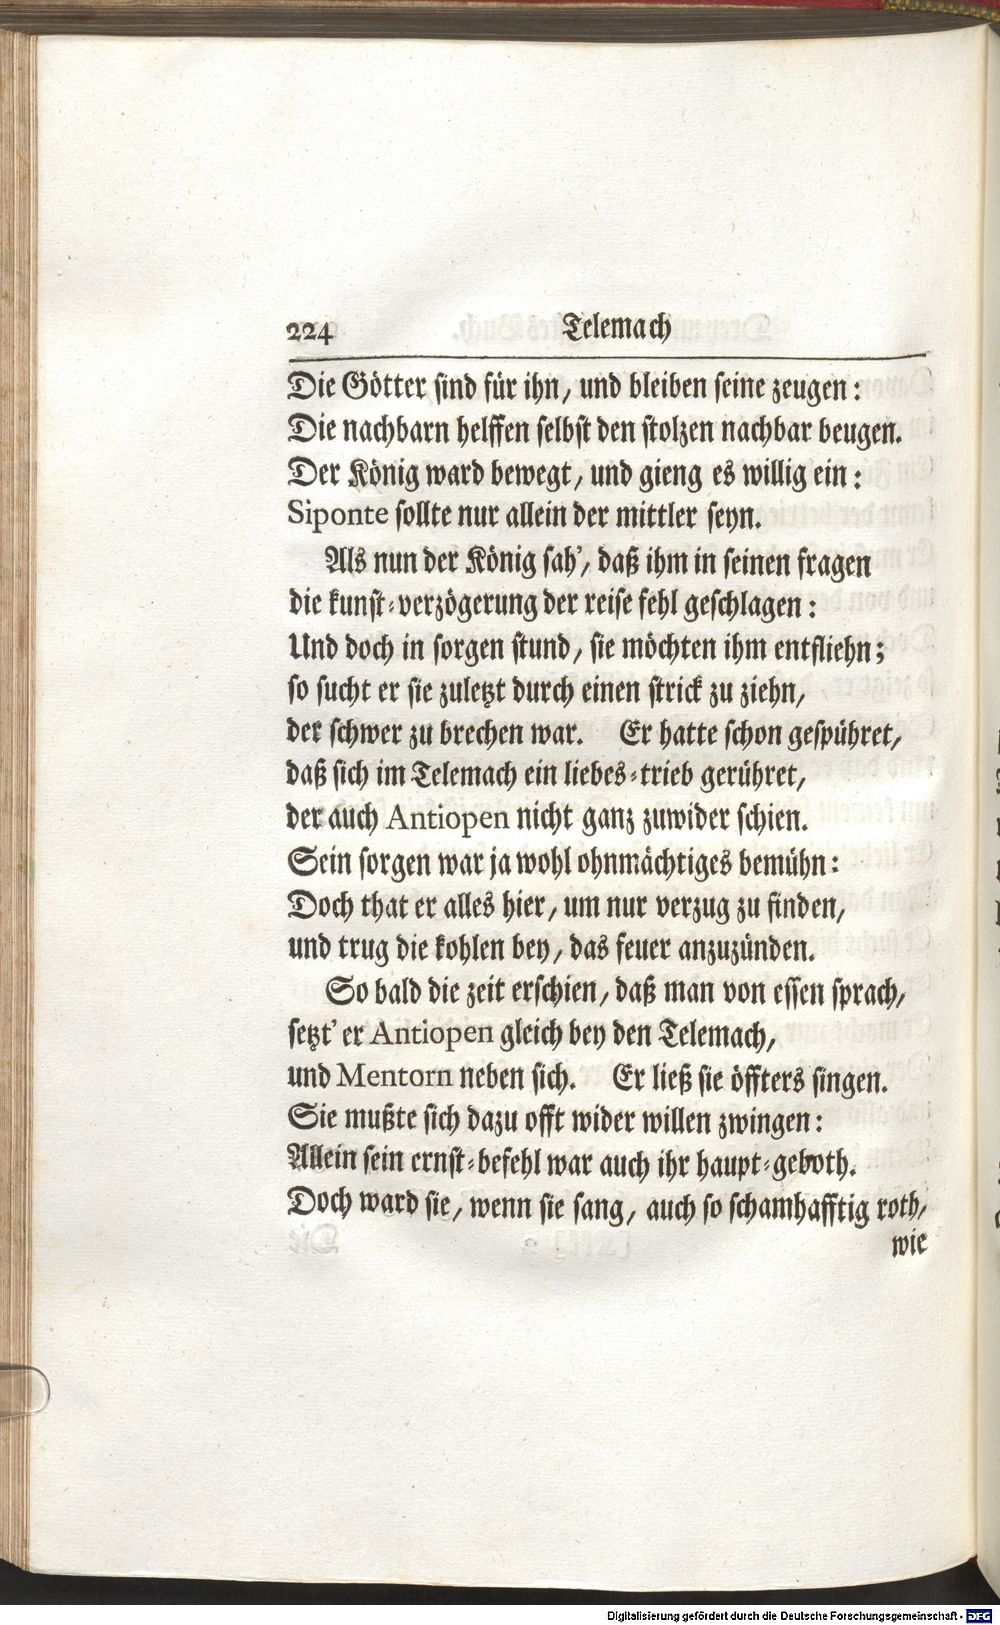 224 Telemach
Die Götter sind für ihn, und bleiben seine zeugen:
Die nachbarn helffen selbst den stolzen nachbar beugen.
Der König ward bewegt, und gieng es willig ein:
Siponte sollte nur allein der mittler seyn.
Als nun der König sah', daß ihm in seinen fragen
die kunst-verzögerung der reise fehl geschlagen:
Und doch in sorgen stund, sie möchten ihm entfliehn;
so sucht er sie zuletzt durch einen strick zu ziehn,
der schwer zu brechen war. Er hatte schon gespühret,
daß sich im Telemach ein liebes-trieb gerühret,
der auch Antiopen nicht ganz zuwider schien.
Sein sorgen war ja wohl ohnmächtiges bemühn:
Doch that er alles hier, um nur verzug zu finden,
und trug die kohlen bey, das feuer anzuzünden.
So bald die zeit erschien, daß man von essen sprach,
setzt' er Antiopen gleich bey den Telemach,
und Mentorn neben sich. Er ließ sie öffters singen.
Sie mußte sich dazu offt wider willen zwingen:
Allein sein ernst-befehl war auch ihr haupt-geboth.
Doch ward sie, wenn sie sang, auch so schamhafftig roth,
wie
Digitalisierung gefördert durch die Deutsche Forschungsgemeinschaft - DFG